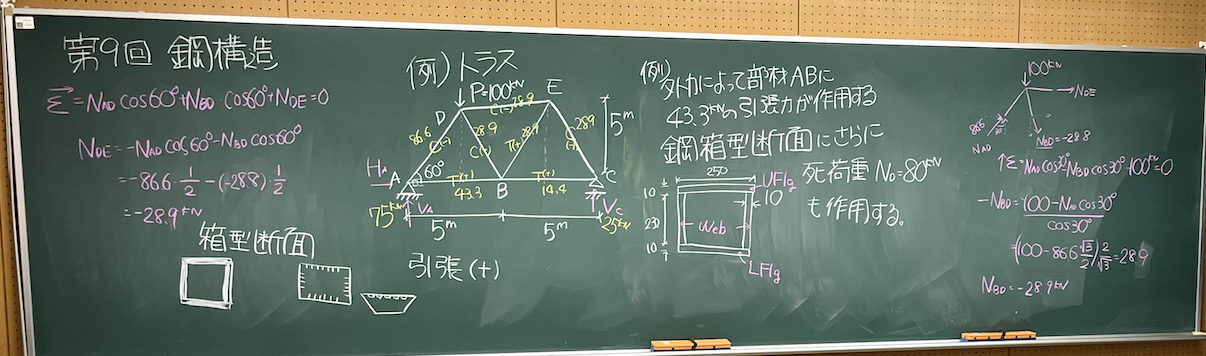 第9回 鋼構造
Σ = NAD COS60°+NBD・COS60°+NDE=0
NDE=-NAD COS60°-NBD COS60°
=-86.6・1/2-(-28.8)1/2
=-28.9kN
箱型断面
例) トラス
P=100kN
D
E
C(-) 28.9
86.6 C(-)
28.9 C(-)
28.9 T(+)
28.9
5m
HA
A
60°
T(+)
43.3
B
T(+)
14.4
C
75kN
VA
VC
25kN
5m
5m
引張(+)
例)
外力によって部材ABに
43.3kNの引張力が作用する
鋼箱型断面にさらに
死荷重ND=80kN
も作用する。
250
UFlg
10
10
Web
10
LFlg
100kN
NDE
86.6
NAD
NBD=-28.8
↑Σ=NAD COS30°-NBD COS30°-100=0
-NBD=(100-NAD COS30°)/COS30°
=(100-86.6 √3/2)2/√3=28.9
NBD=-28.9kN